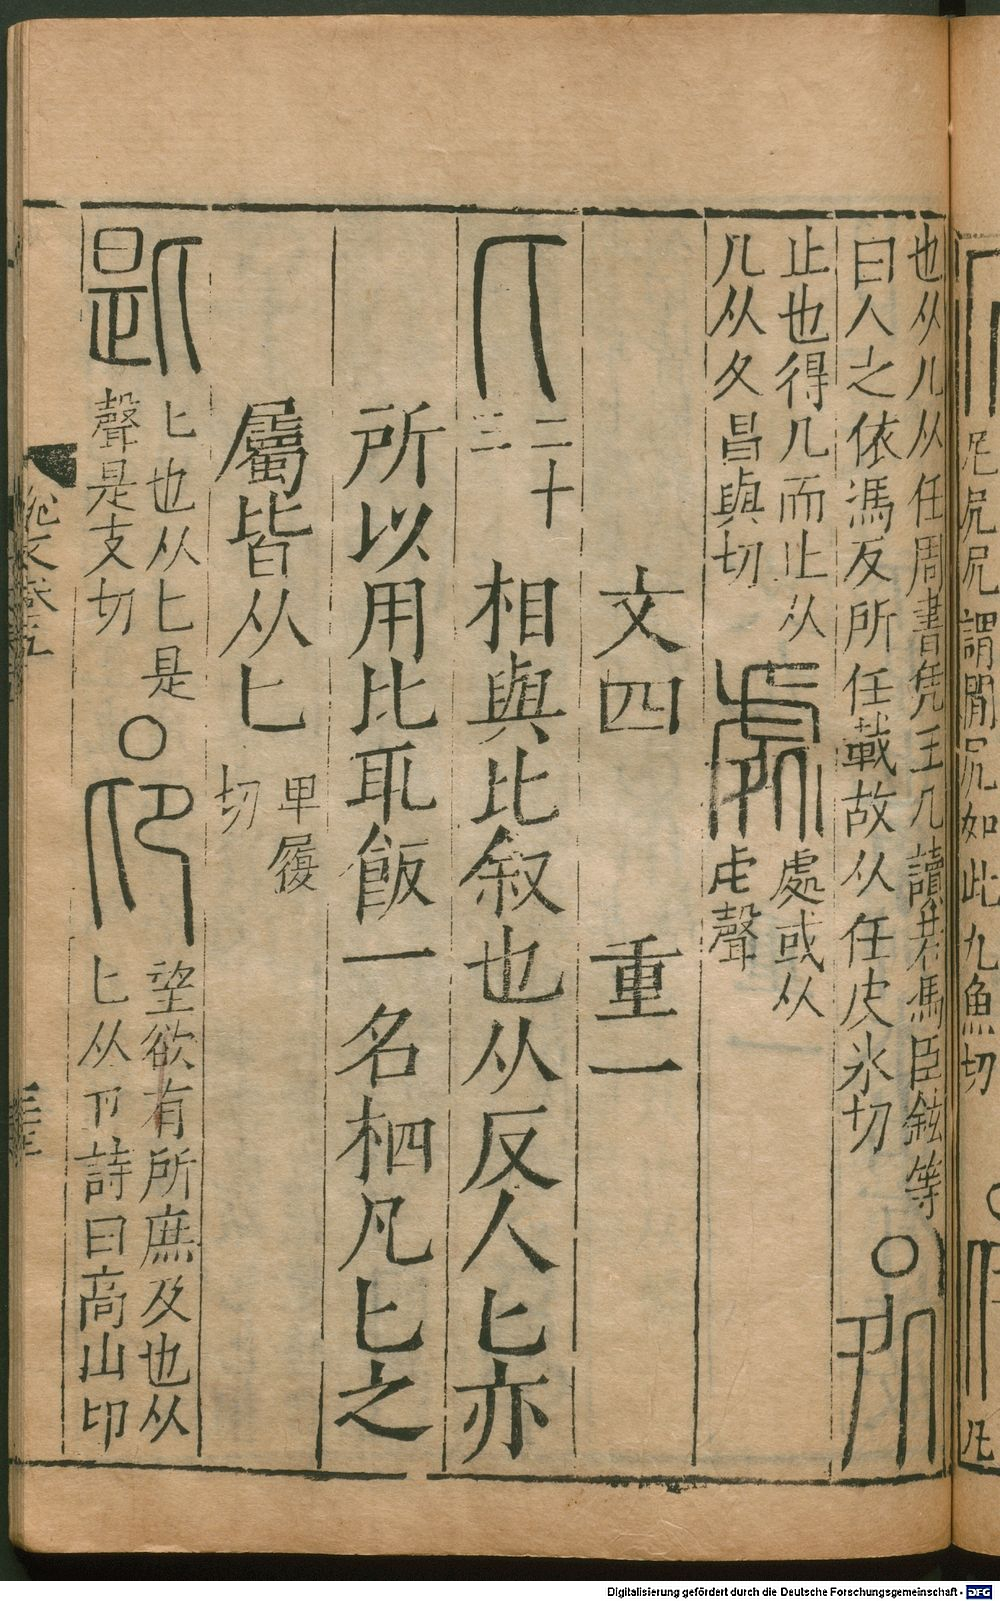 尻尻謂閒尻如此九魚切
也从几从任周書凭玉几讀若馮臣鉉等
曰人之依馮反所任載故从任皮氷切○
止也得几而止从
几从夂昌與切
處或从
虍聲
文四 重一
二十三
相與比叙也从反人匕亦
所以用比取飯一名柶凡匕之
屬皆从匕
卑履
切
匕也从匕是
聲是支切
○
望欲有所庶及也从
匕从卪詩曰高山卬
Digitalisierung gefördert durch die Deutsche Forschungsgemeinschaft - DFG